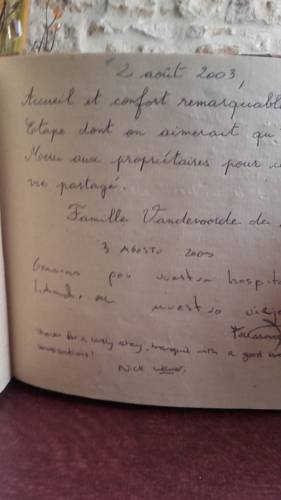 2 août 2003,
Accueil et confort remarquable
Etape dont on aimerait qu
aux propriétaires pour
vie partagé.
Famille Vandevoorde de
3 AGOSTO 2003
Gracias por vuestra hospita
en nuestro viaje
Thanks for a lovely stay, tranquil with a good
conversations!
NICK